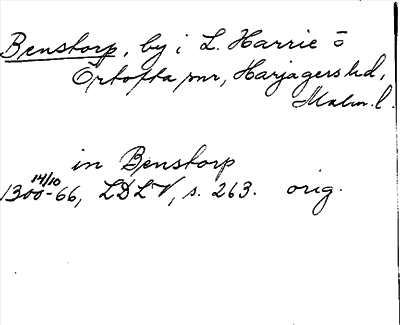 Benstorp, by i L. Harrie o
Örtofta snr, Harjagers hd,
Malm. l.
in Benstorp
14/10
1300-66, LDLV, s. 263. orig.